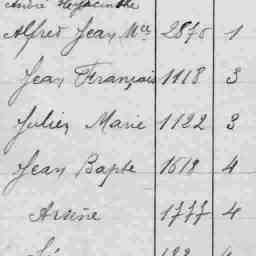 André Hyacinthe
Alfred Jean Mce 2870 1
Jean François 1118 3
Julien Marie 1122 3
Jean Bapte 1618 4
Arsène 1777 4